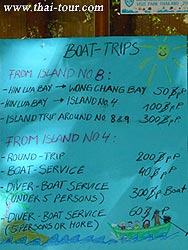 © www.thai-tour.com
VISIT PARK THAILAND
BOAT-TRIPS
FROM ISLAND NO.8:
- HIN LUA BAY → WONG CHANG BAY 50 ฿ p.P
- HIN LUA BAY → ISLAND NO.4 100 ฿ p.P
- ISLAND TRIP AROUND NO. 8 & 9 300 ฿ p.P
FROM ISLAND NO.4:
- ROUND-TRIP 200 ฿ p.P
- BOAT-SERVICE 40 ฿ p.P
- DIVER-BOAT SERVICE 300 ฿ p.Boat
(UNDER 5 PERSONS)
- DIVER-BOAT SERVICE 60 ฿ p.P
(5 PERSONS OR MORE)